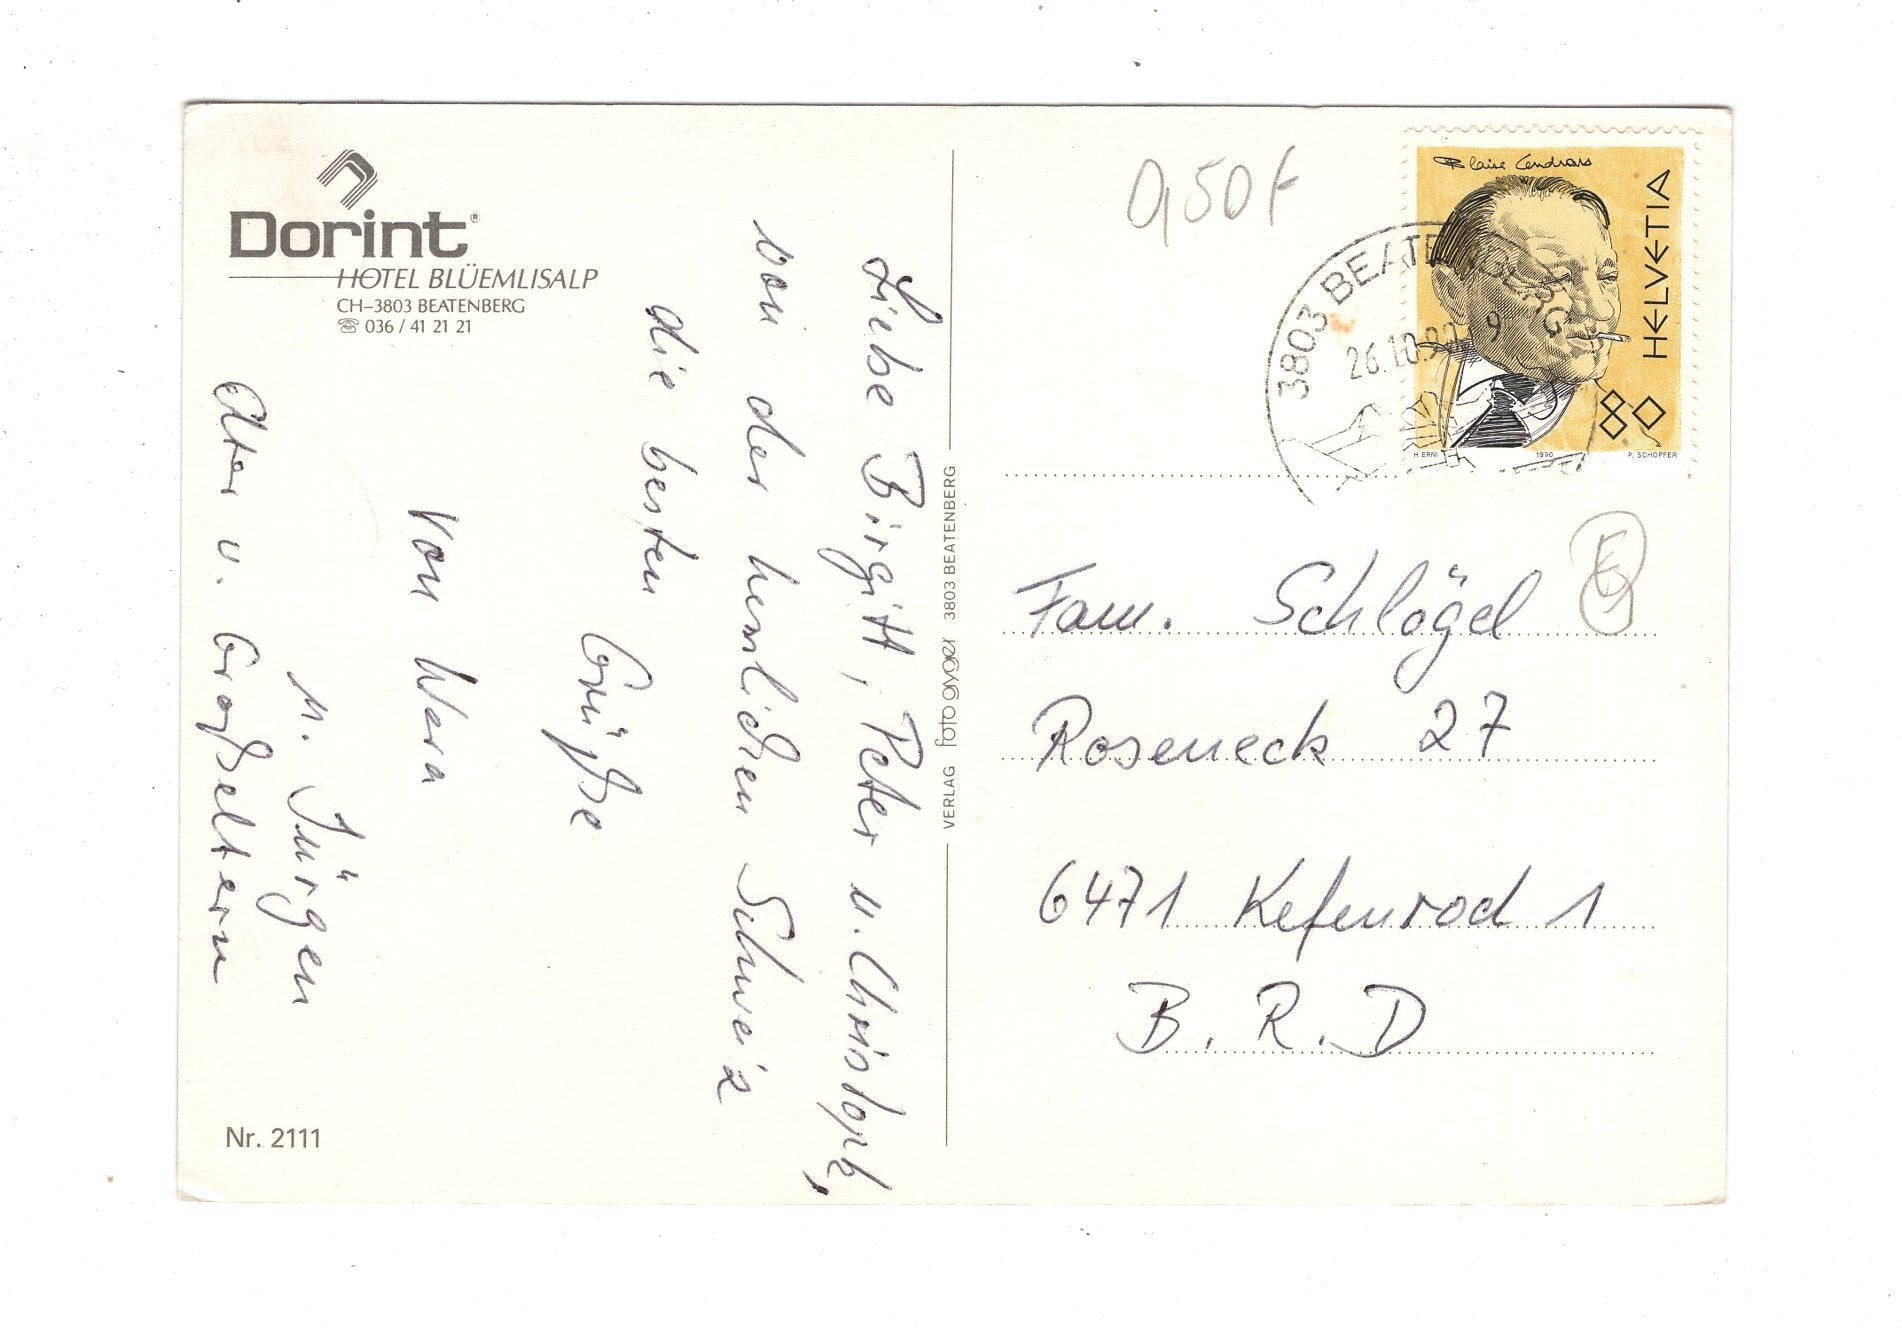 Dorint®
HOTEL BLÜEMLISALP
CH–3803 BEATENBERG
☏ 036 / 41 21 21
Liebe Birgitt, Peter u. Christoph,
von der herrlichen Schweiz
die besten
Grüße
von Wera
u. Jürgen
Alter u. Großeltern
Nr. 2111
VERLAG foto gyger 3803 BEATENBERG
0,50 €
Blaise Cendrars
HELVETIA
80
H. ERNI 1990 P. SCHOPFER
3803 BEATENBERG
26.10.90 9
Fam. Schlögel
Roseneck 27
6471 Kefenrod 1
B. R. D